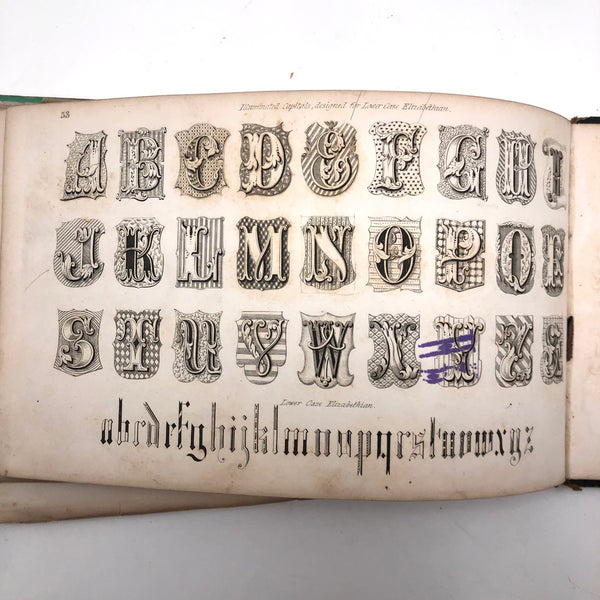 53
Illuminated Capitals, designed for Lower Case Elizabethian.
A B C D E F G H I
J K L M N O P Q R
S T U V W X Y Z &
Lower Case Elizabethian.
abcdefghijklmnopqrstuvwxyz